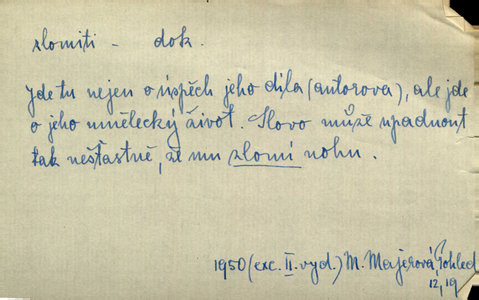 zlomiti – dok.
Jde tu nejen o úspěch jeho díla (autorova), ale jde
o jeho umělecký život. Slovo může upadnout
tak nešťastně, že mu zlomí nohu.
1950 (exc. II. vyd.) M. Majerová, Pohled
12, 19